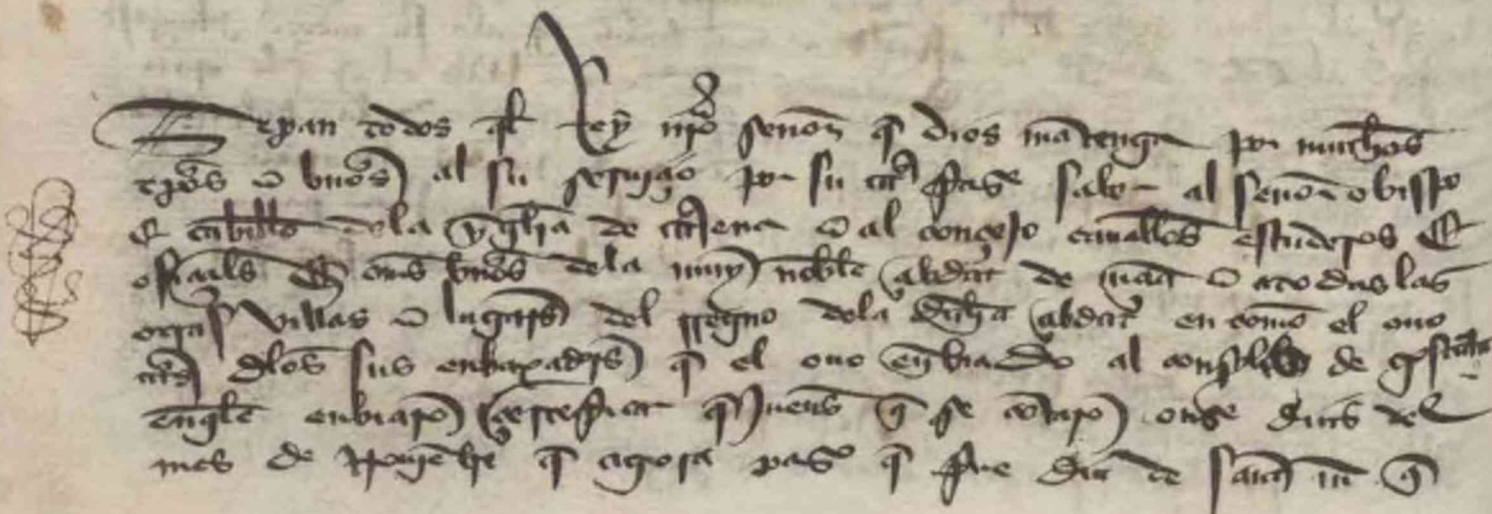 Sepan todos q̄l Rey nr̄o señor q̄ dios mātenga por muchos
tp̄os e buēos al su seruiçio por su cara faze saber al señor obispo
e cabillo dela ygl̄ia de cartjena e al conçejo caualleros escuderos e
ofiçiales e om̄s buēos dela muy noble çibdat de murçia e a todas las
otras villas e lugares del rregno dela dicha çibdat en commo el ouo
cartas delos sus enbaxadores q̄ el ouo enbiado al conçilio de
enbiaron q̄ jueues q̄ se contaron onze dias del
mes de nouienbre q̄ agora paso q̄ fue dia de sant m̄n q̄